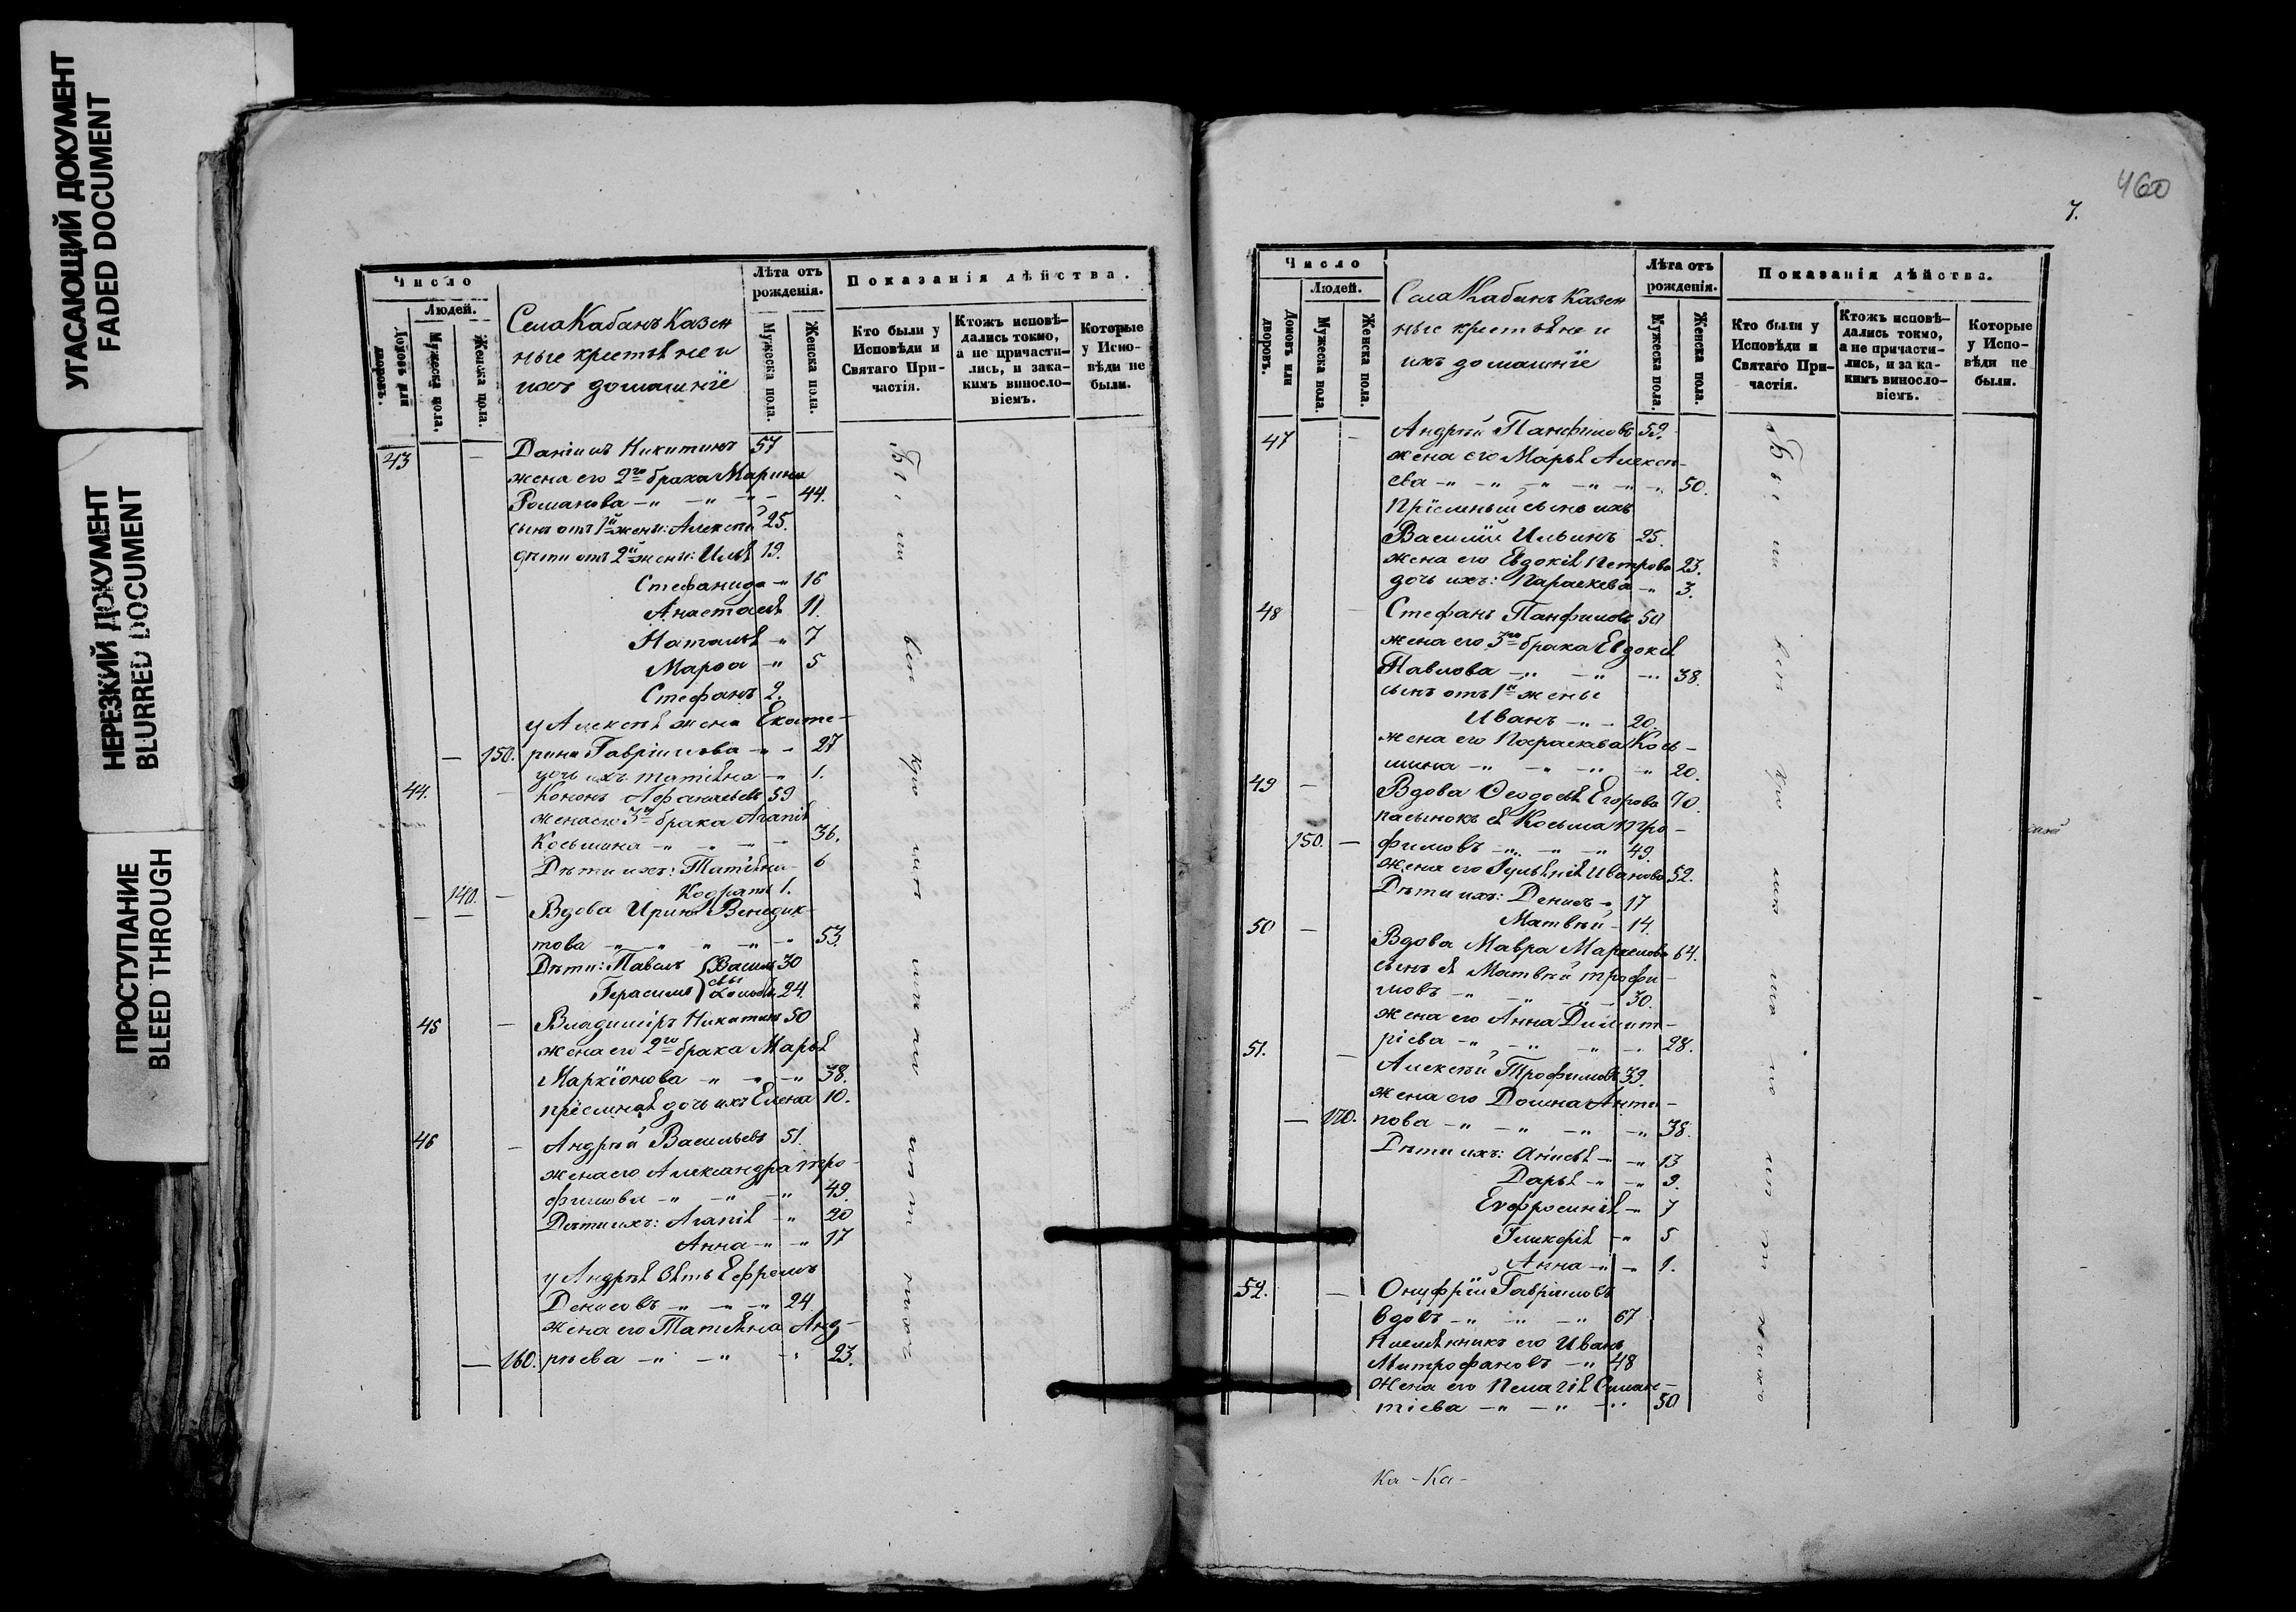 УГАСАЮЩИЙ ДОКУМЕНТ
FADED DOCUMENT
НЕРЕЗКИЙ ДОКУМЕНТ
BLURRED DOCUMENT
ПРОСТУПАНИЕ
BLEED THROUGH
Число
Людей.
Домовъ или дворовъ.
Мужеска пола.
Женска пола.
Села Кабанъ Казен
ные крестьяне и
ихъ домашніе
Лѣта отъ
рожденія.
Мужеска пола.
Женска пола.
Показанія дѣйства.
Кто были у
Исповѣди и
Святаго При-
частія.
Ктожъ исповѣ-
дались токмо,
а не причасти-
лись, и зака-
кимъ винословіемъ.
Которые
у Испо-
вѣди не
были.
43 — Даніилъ Никитинъ 57
жена его 2го брака Марина
Романова 44.
сынъ отъ 1й жены: Алексѣй 25.
дѣти отъ 2й жены: Илья 19.
Стефанида 16
Анастасія 11.
Наталья 7
Марѳа 5
Стефанъ 2.
у Алексѣя жена Екате-
— 150. рина Гавріилова 27
дочь ихъ Татіяна 1.
44. — Кононъ Афанасьевъ 59
жена его 3го брака Агапія
Косьмина 36.
Дѣти ихъ: Татіяна 6
140. — Кодратъ 1.
— — Вдова Ирина Венедик-
това 53.
Дѣти: Павелъ Василь 30
Герасимъ евы 24.
45 — Владиміръ Никитинъ 50
жена его 2го брака Марья
Маркіонова 38.
пріемная дочь ихъ Елена 10.
46 — Андрѣй Васильевъ 51.
жена его Александра Тро-
фимова 49.
Дѣти ихъ: Агапія 20
Анна 17
у Андрѣя зять Ефремъ
Денисовъ 24.
жена его Татіяна Анд-
— 160. рѣева 23.
Бы ли
460
7.
Число
Людей.
Домовъ или дворовъ.
Мужеска пола.
Женска пола.
Села Кабанъ Казен
ные крестьяне и
ихъ домашніе
Лѣта отъ
рожденія.
Мужеска пола.
Женска пола.
Показанія дѣйства.
Кто были у
Исповѣди и
Святаго При-
частія.
Ктожъ исповѣ-
дались токмо,
а не причасти-
лись, и за ка-
кимъ винословіемъ.
Которые
у Испо-
вѣди не
были.
47 — Андрѣй Панфиловъ 59.
жена его Марья Алексѣ-
ева 50.
Пріемный сынъ ихъ
Василій Ильинъ 25.
жена его Евдокія Петрова 23.
дочь ихъ: Параскева 3.
48 — Стефанъ Панфиловъ 50
жена его 3го брака Евдокія
Павлова 38.
сынъ отъ 1й жены
Иванъ 20.
жена его Параскева Кось-
мина 20.
49 — Вдова Ѳеодосья Егорова 70.
пасынокъ ея Косьма Тро-
150. — фимовъ 49.
жена его Гульянія Иванова 52.
Дѣти ихъ: Денисъ 17
Матвѣй 14.
50 — Вдова Мавра 64.
сынъ ея Матвѣй Трофи-
мовъ 30.
жена его Анна Димит-
ріева 28.
51. — Алексѣй Трофимовъ 39.
жена его Домна Анти-
— 170. пова 38.
Дѣти ихъ: Анисья 13
Дарья 9.
Евфросинія 7
Гликерія 5
Анна 1.
52. — Онуфрій Гавріиловъ
вдовъ 67
Племянникъ его Иванъ
Митрофановъ 48
жена его Пелагія Силан-
тіева 50
Бы ли
Ка - Ка -